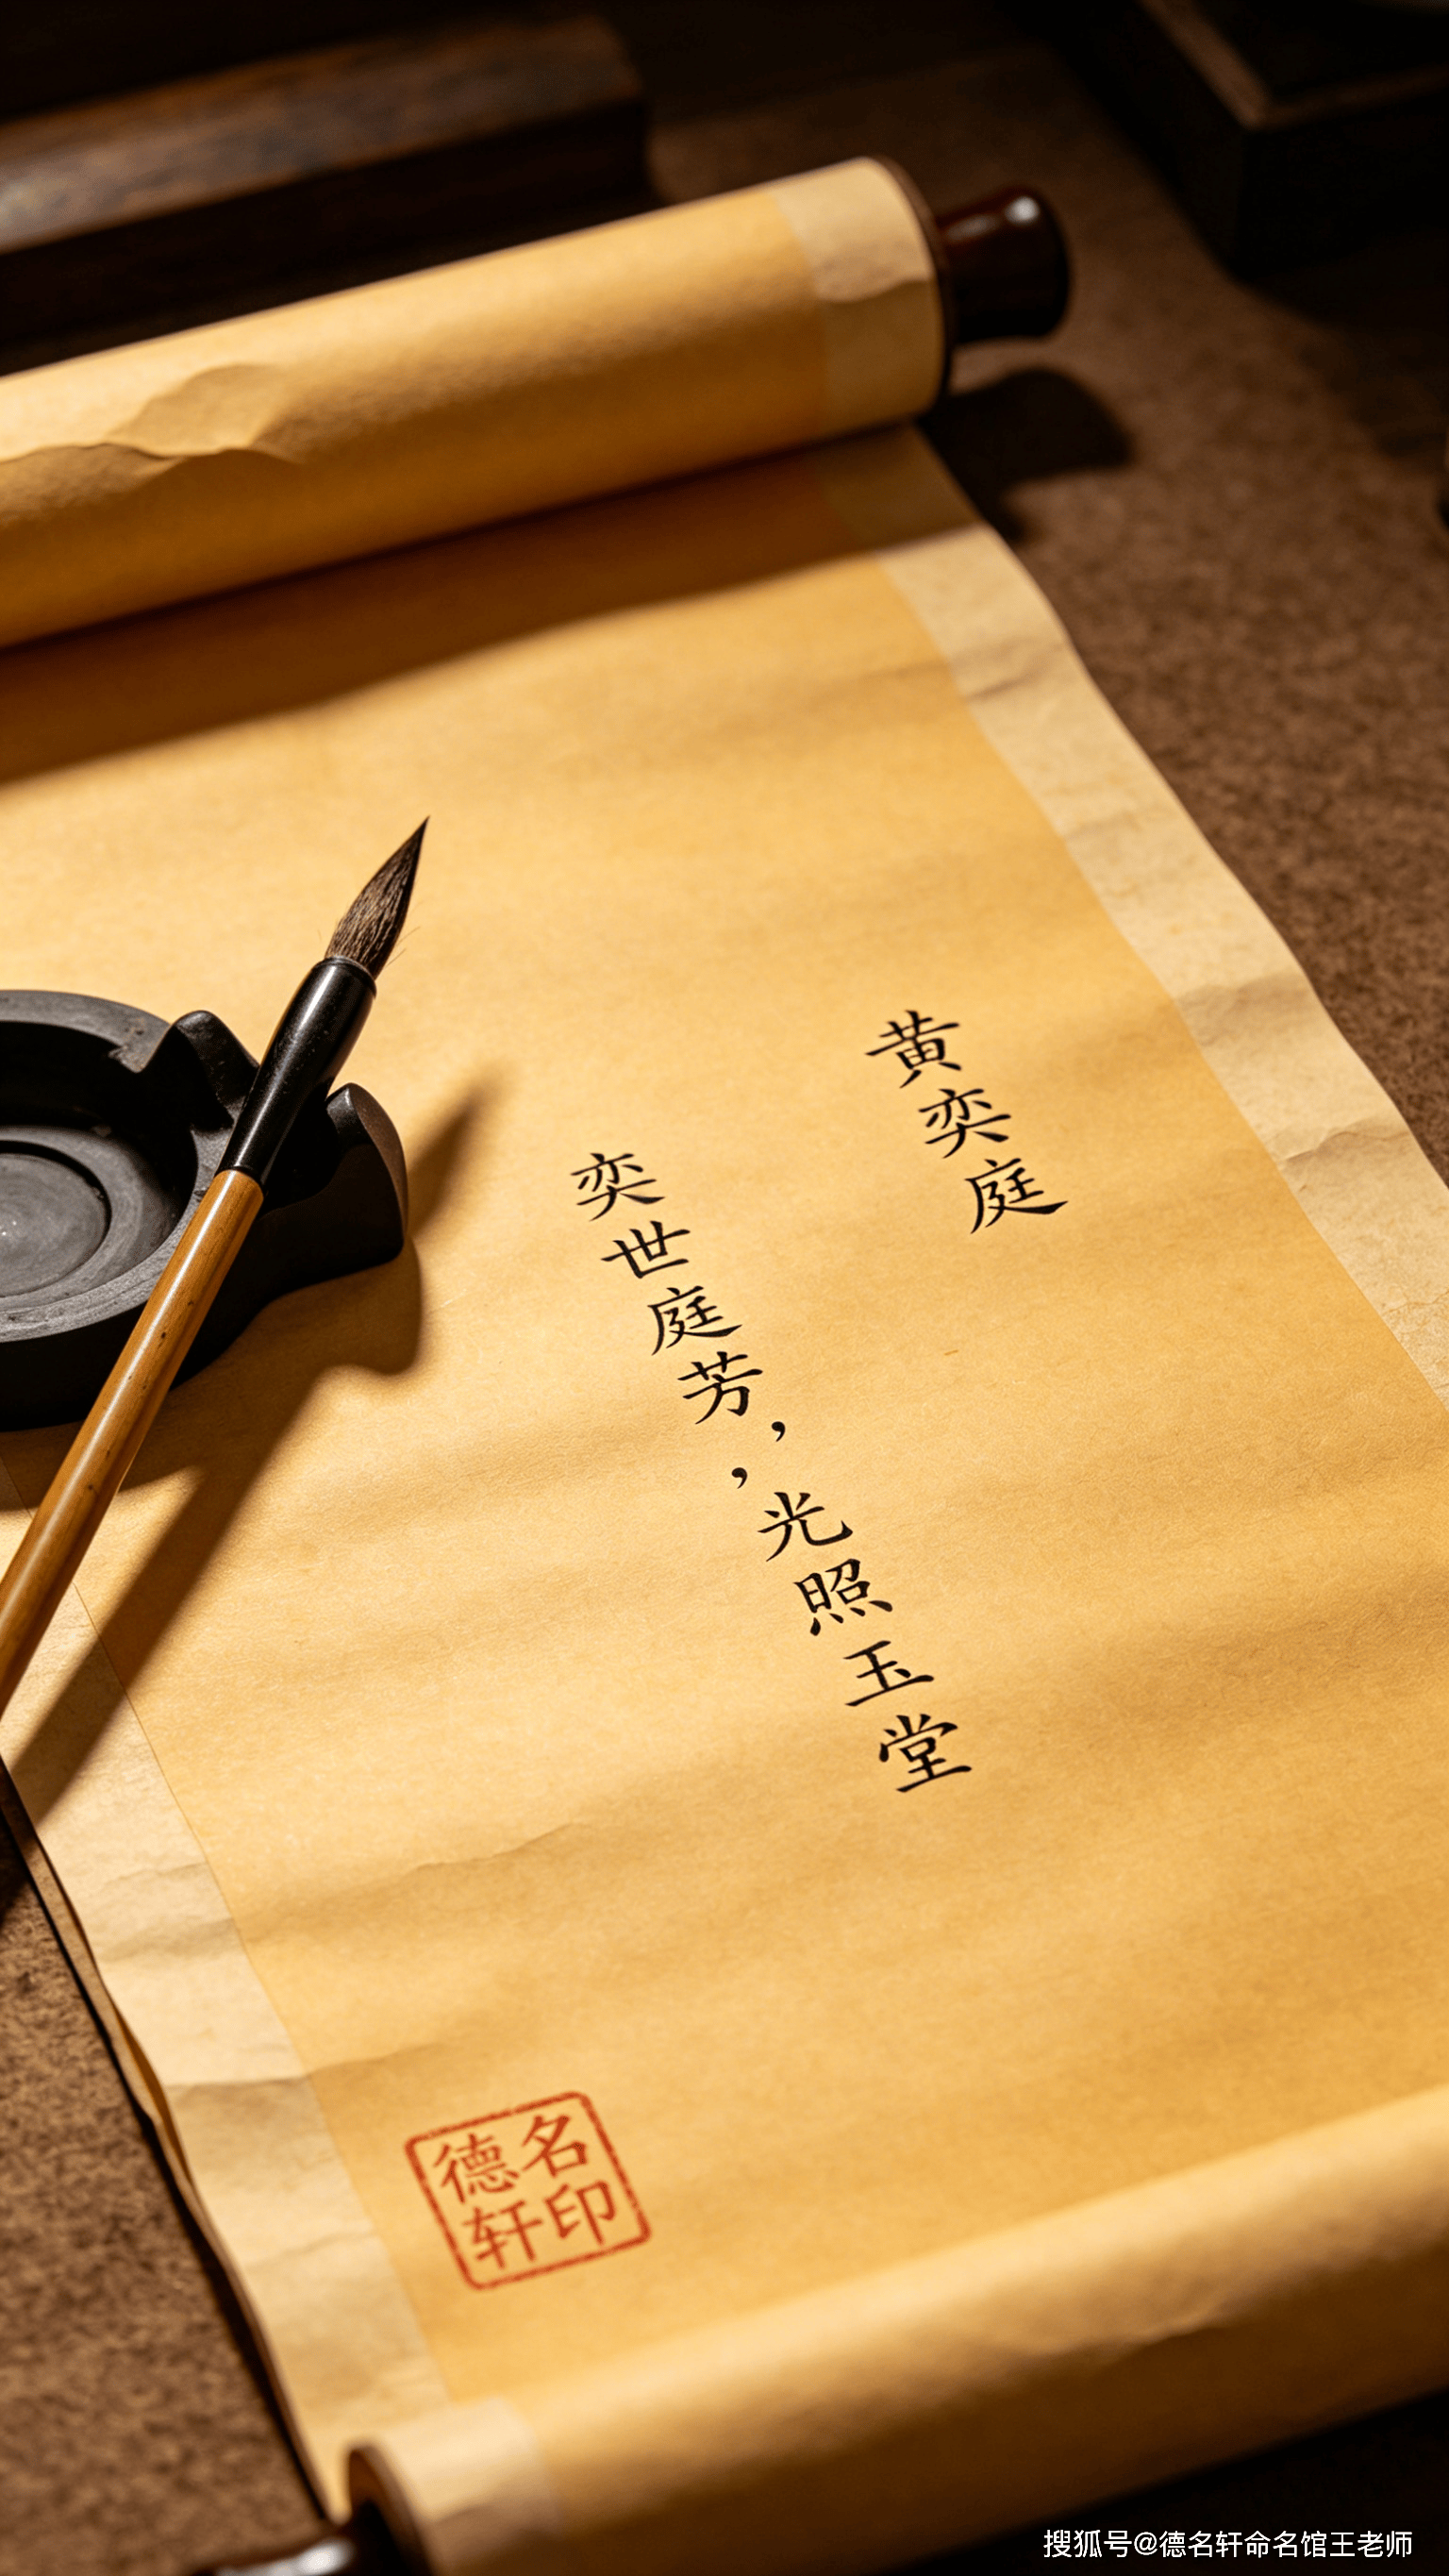 黄奕庭
奕世庭芳，，光照玉堂
德名
轩印
搜狐号@德名轩命名馆王老师